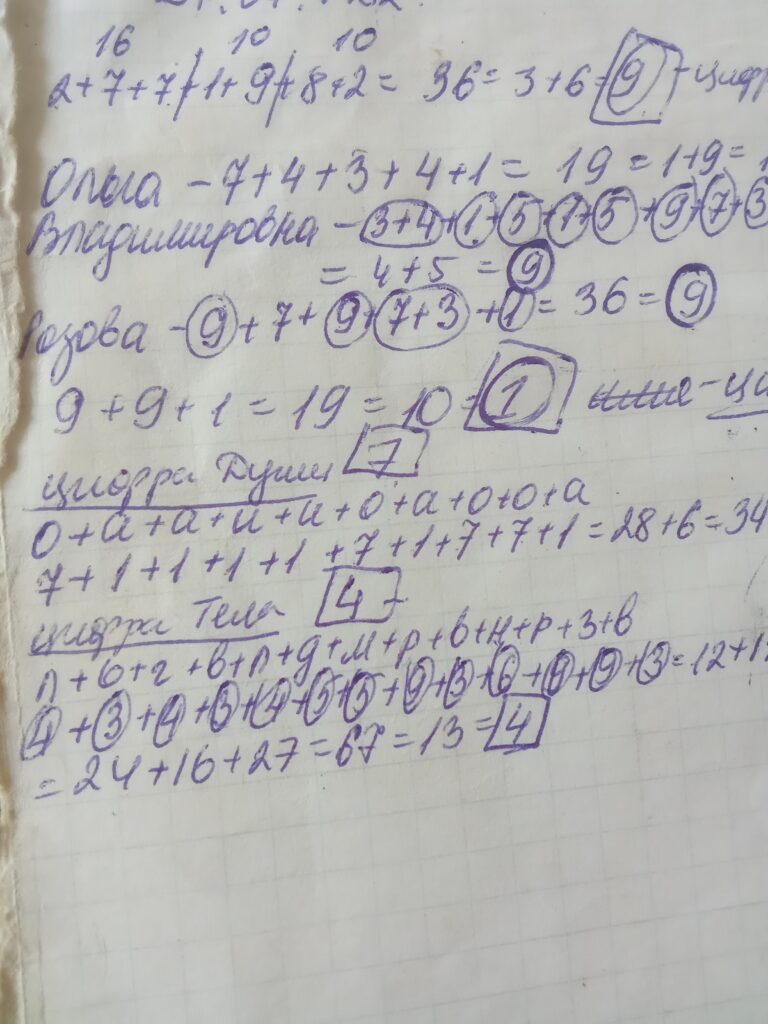 16 10 10
2+7+7+1+9+8+2= 36= 3+6=9 - цифр
Ольга - 7+4+3+4+1= 19 = 1+9=
Владимировна - 3+4+1+5+1+5+9+7+3
= 4+5 = 9
Розова - 9+7+9+7+3+1= 36 = 9
9+9+1 = 19 = 10 = 1 - ци
цифра Души 7
о+а+а+и+и+о+а+о+о+а
7+1+1+1+1+7+1+7+7+1=28+6=34
цифра Тела 4
л+ь+г+в+л+д+м+р+в+н+р+з+в
4+3+4+3+4+5+5+9+3+6+9+9+3=12+1
= 24+16+27=67=13=4